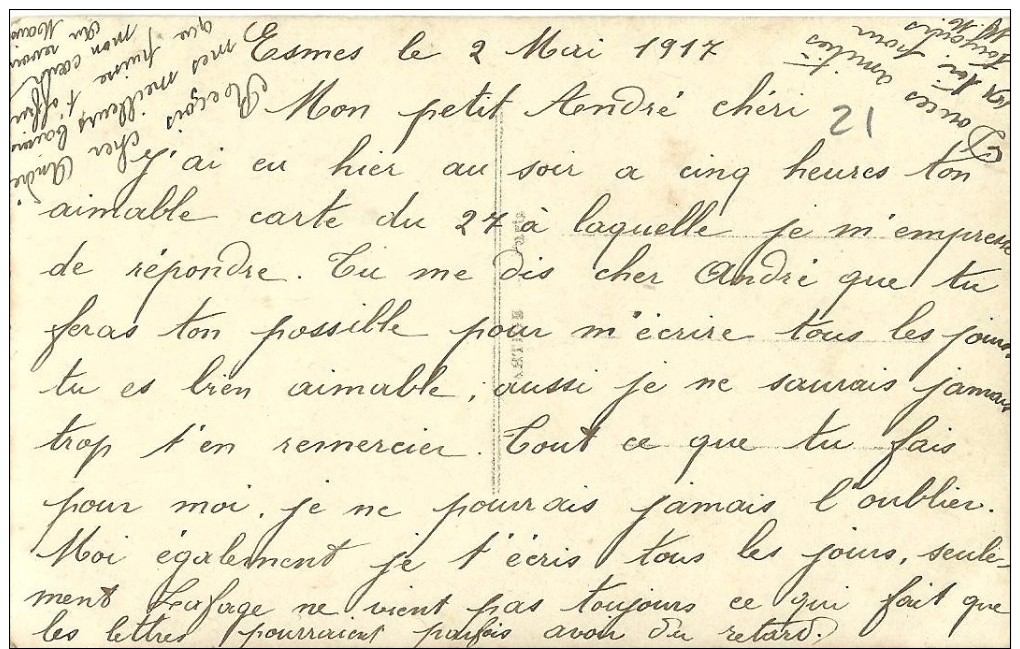 Esmes le 2 Mai 1917
Mon petit André chéri
21
J'ai eu hier au soir a cinq heures ton
aimable carte du 27 à laquelle je m'empresse
de répondre. Tu me dis cher André que tu
feras ton possible pour m'écrire tous les jours
tu es bien aimable, aussi je ne saurais jamais
trop t'en remercier. Tout ce que tu fais
pour moi, je ne pourrais jamais l'oublier.
Moi également je t'écris tous les jours, seule-
ment Lafage ne vient pas toujours ce qui fait que
les lettres pourraient parfois avoir du retard.
Reçois cher André
mes meilleurs baisers
que puisse t'offrir
mon cœur
Au revoir
Douces amitiés
pour toi
toujours